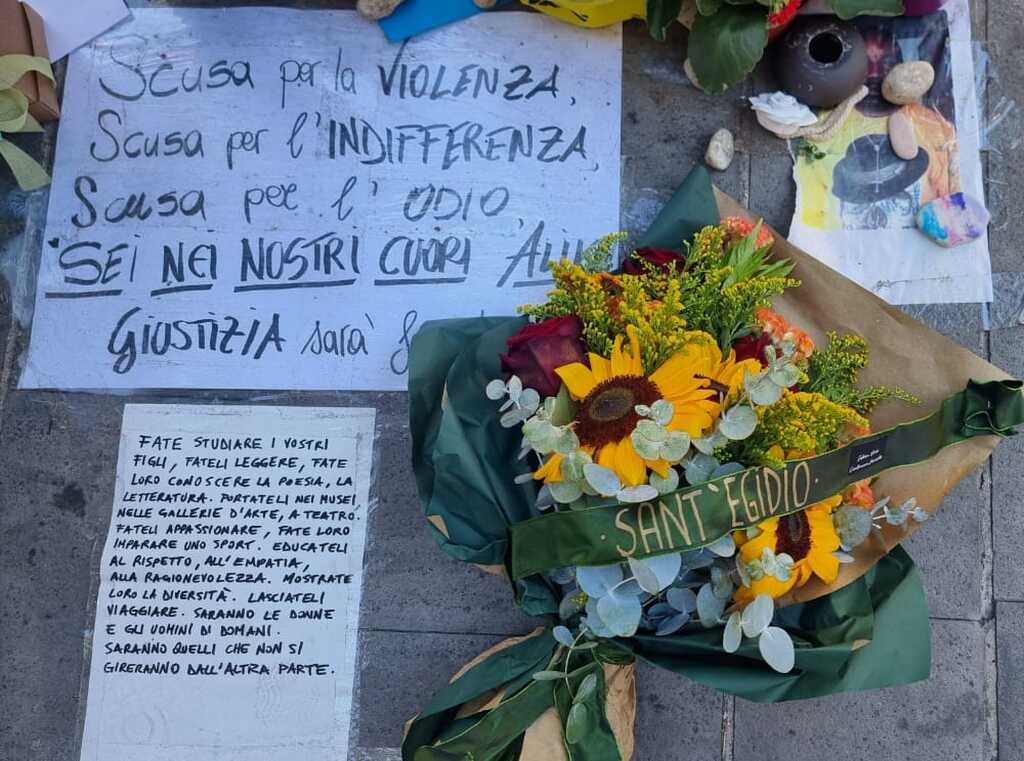 Scusa per la VIOLENZA,
Scusa per l'INDIFFERENZA,
Scusa per l'ODIO,
SEI NEI NOSTRI CUORI
GIUSTIZIA sarà
FATE STUDIARE I VOSTRI
FIGLI, FATELI LEGGERE, FATE
LORO CONOSCERE LA POESIA, LA
LETTERATURA. PORTATELI NEI MUSEI
NELLE GALLERIE D'ARTE, A TEATRO.
FATELI APPASSIONARE, FATE LORO
IMPARARE UNO SPORT. EDUCATELI
AL RISPETTO, ALL'EMPATIA,
ALLA RAGIONEVOLEZZA. MOSTRATE
LORO LA DIVERSITÀ. LASCIATELI
VIAGGIARE. SARANNO LE DONNE
E GLI UOMINI DI DOMANI.
SARANNO QUELLI CHE NON SI
GIRERANNO DALL'ALTRA PARTE.
· SANT'EGIDIO ·